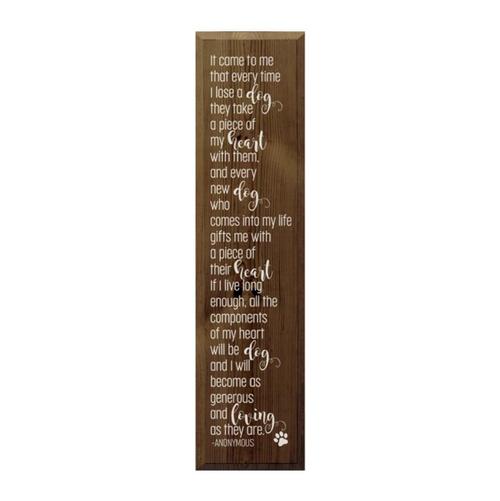 It came to me
that every time
I lose a dog
they take
a piece of
my heart
with them,
and every
new dog
who
comes into my life
gifts me with
a piece of
their heart
If I live long
enough, all the
components
of my heart
will be dog
and I will
become as
generous
and loving
as they are.
-ANONYMOUS